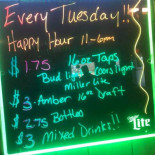 Every Tuesday!!
Happy Hour 11-6pm
$1.75 16oz Taps
Bud light, Coors light
Miller Lite
$3-Amber 16oz Draft
$2.75 Bottles
$3 Mixed Drinks!!
Lite